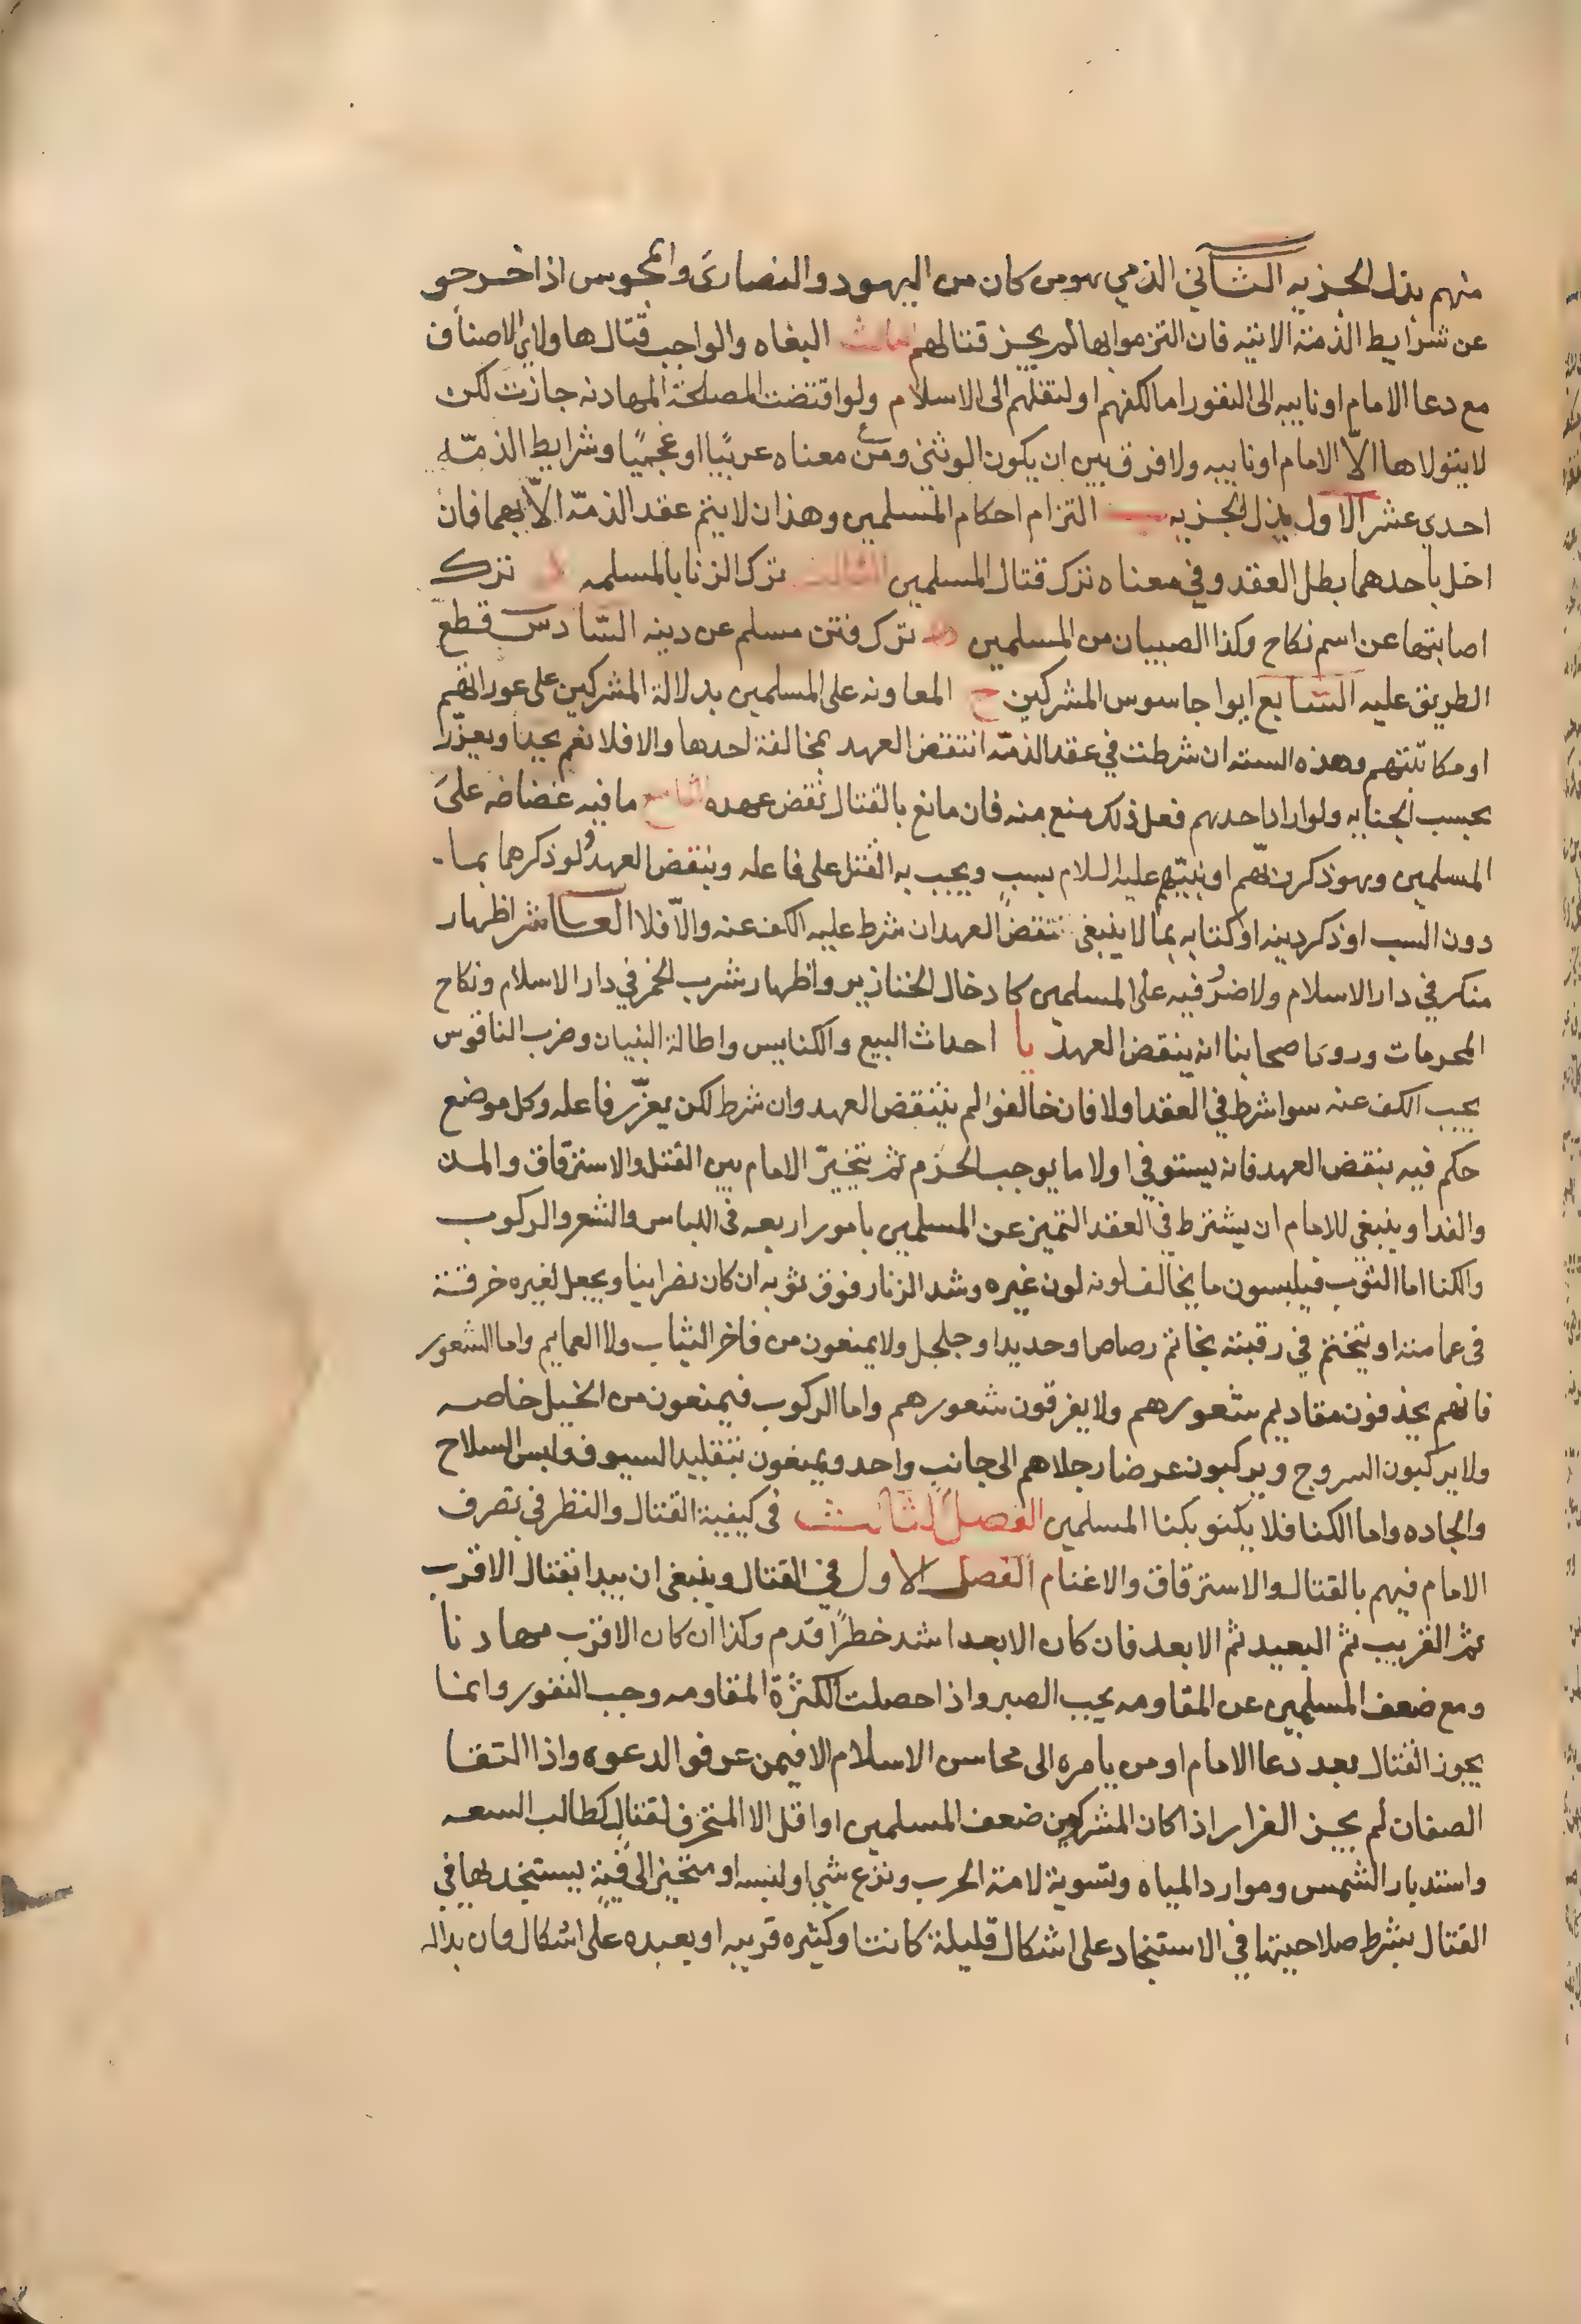 منهم بذل الجزيه الثاني الذمي وهو من كان من اليهود والنصارى والمجوس اذا خرجو
عن شرايط الذمة الاتيه فان التزموا بها لم يجز قتالهم الثالث البغاه والواجب قتال هاولاي الاصناف
مع دعا الامام او نايبه الى النفور اما لكفهم او لنقلهم الى الاسلام ولو اقتضت المصلحة المهادنه جازت لكن
لا يتولاها الّا الامام او نايبه ولا فرق بين ان يكون الوثني ومن في معناه عربيًا او عجميًا وشرايط الذمّه
احدى عشر الاول بذل الجزيه ب التزام احكام المسلمين وهذان لا يتم عقد الذمّة الّا بهما فان
اخل باحدهما بطل العقد وفي معناه ترك قتال المسلمين الثالث ترك الزنا بالمسلمه د ترك
اصابتها عن اسم نكاح وكذا الصبيان من المسلمين ه ترك فتن مسلم عن دينه السادس قطع
الطريق عليه السابع ايوا جاسوس المشركين ح المعاونه على المسلمين بدلالة المشركين على عوراتهم
او مكاتبتهم وهذه السته ان شرطت في عقد الذمّة انتقض العهد بمخالفة احدها والا فلا نعم يحد او يعزّر
بحسب الجنايه ولو اراد احدهم فعل ذلك منع منه فان مانع بالقتال نقض عهده التاسع ما فيه غضاضه على
المسلمين وهو ذكر ربّهم او نبيّهم عليه السلام بسبٍ ويجب به القتل على فاعله وينقض العهد ولو ذكرهما بما
دون السب او ذكر دينه او كتابه بما لا ينبغي نتقض العهد ان شرط عليه الكف عنه والّا فلا العاشر اظهار
منكر في دار الاسلام ولا ضرر فيه على المسلمين كادخال الخنازير واظهار شرب الخمر في دار الاسلام ونكاح
المحرمات وروى اصحابنا انه ينقض العهد يا احداث البيع والكنايس واطالة البنيان وضرب الناقوس
يجب الكف عنه سوا شرط في العقد اولا فان خالفوا لم ينتقض العهد وان شرط لكن يعزّر فاعله وكل موضع
حكم فيه بنقض العهد فانه يستوفي اولا ما يوجب الجرم ثم يتخيّر الامام بين القتل والاسترقاق والمن
والفدا وينبغي للامام ان يشترط في العقد التميز عن المسلمين بامور اربعه في اللباس والشعر والركوب
والكنا اما الثوب فيلبسون ما يخالف لونه لون غيره وشد الزنار فوق ثوبه ان كان نصرانيا ويجعل لغيره خرقة
في عمامته او يتختم في رقبته بخاتم رصاص او حديد او جلجل ولا يمنعون من فاخر الثياب ولا العمايم واما الشعور
فانهم يحذفون مقاديم شعورهم ولا يفرقون شعورهم واما الركوب فيمنعون من الخيل خاصه
ولا يركبون السروج ويركبون عرضا رجلاهم الى جانب واحد ويمنعون تقليد السيوف ولبس السلاح
واتخاده واما الكنا فلا يكنو بكنا المسلمين الفصل الثالث في كيفية القتال والنظر في تصرف
الامام فيهم بالقتال والاسترقاق والاغنام الفصل الاول في القتال وينبغي ان يبدا بقتال الاقرب
ثم القريب ثم البعيد ثم الابعد فان كان الابعد اشد خطرًا قدم وكذا ان كان الاقرب مهادنا
ومع ضعف المسلمين عن المقاومه يجب الصبر واذا حصلت الكثرة المقاومه وجب النفور وانما
يجوز القتال بعد دعا الامام او من يامره الى محاسن الاسلام الا فيمن عرفو الدعوه واذا التقا
الصفان لم يجز الفرار اذا كان المشركون ضعف المسلمين او اقل الا المتحرف لقتال كطالب السعه
واستدبار الشمس وموارد المياه وتسوية لامة الحرب ونزع شي او لبسه او متحيز الى فيةٍ يستنجد بها في
القتال بشرط صلاحيتها في الاستنجاد على اشكال قليلة كانت او كثيره قريبه او بعيده على اشكال فان بدا له